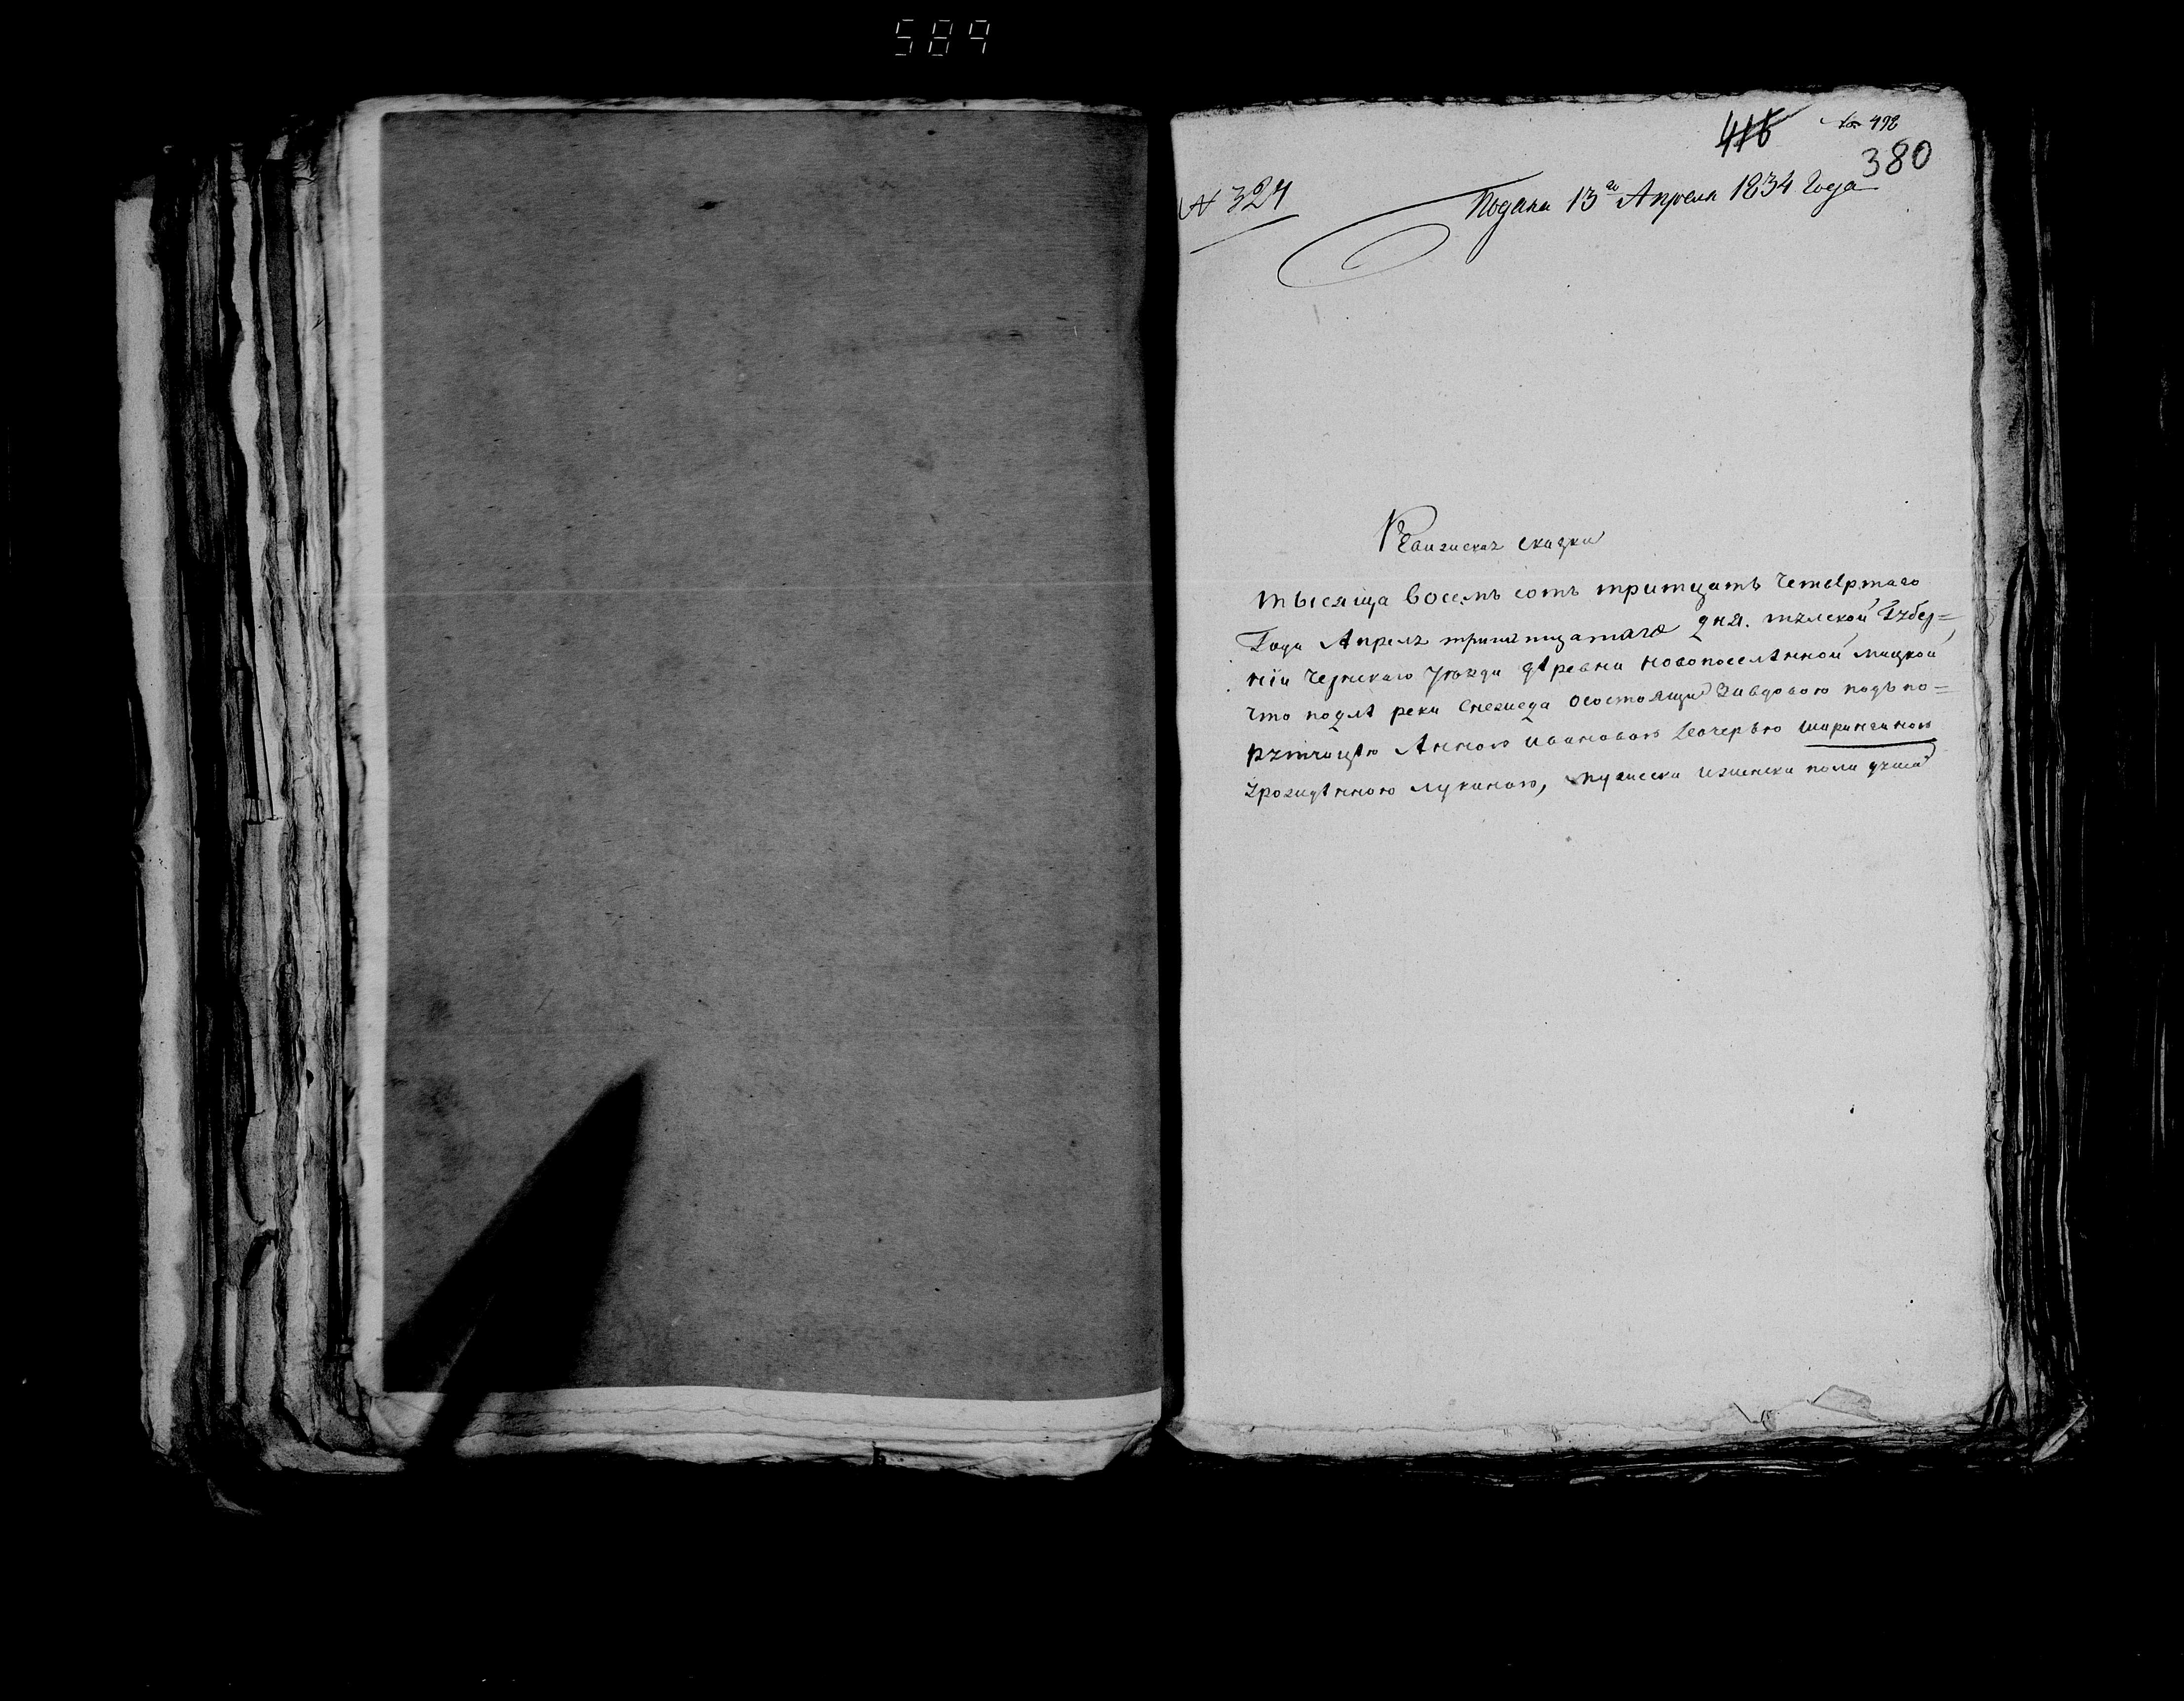 589
416
492
380
№ 324
Подана 13го Апреля 1834 Года
Ревизская сказка
тысяща восемь сотъ тритцать четвертаго
Года Апреля тринатцатаго дня. тулской Губер=
нїи чернскаго уезда деревни новопоселенной мицкой
что подле реки снежеда осостоящи за вдовою подъпо=
рутчицею Анною ивановою дочерью шаринскиною
урожденною лукиною, мужеска иженска пола душа